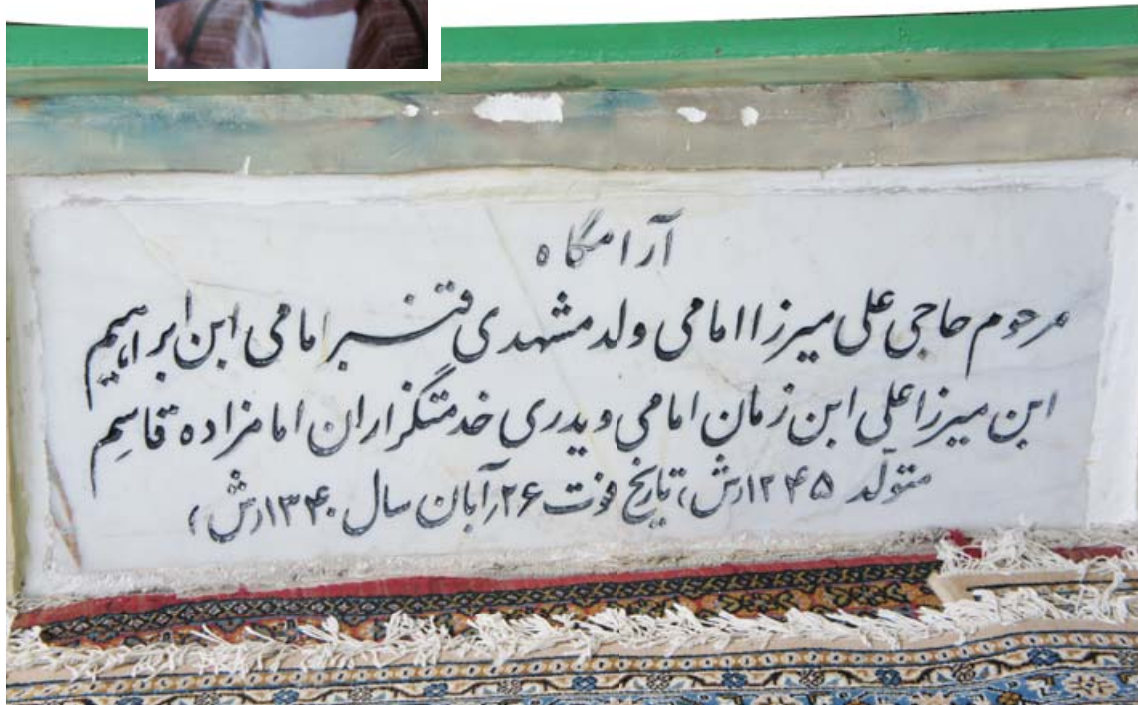 آرامگاه
مرحوم حاجی علی میرزا امامی ولد مشهدی قنبر امامی ابن ابراهیم
ابن میرزا علی ابن زمان امامی ویدری خدمتگزاران امامزاده قاسم
متولّد ۱۲۴۵ر ش، تاریخ فوت ۲۶ر آبان سال ۱۳۴۰ر ش،